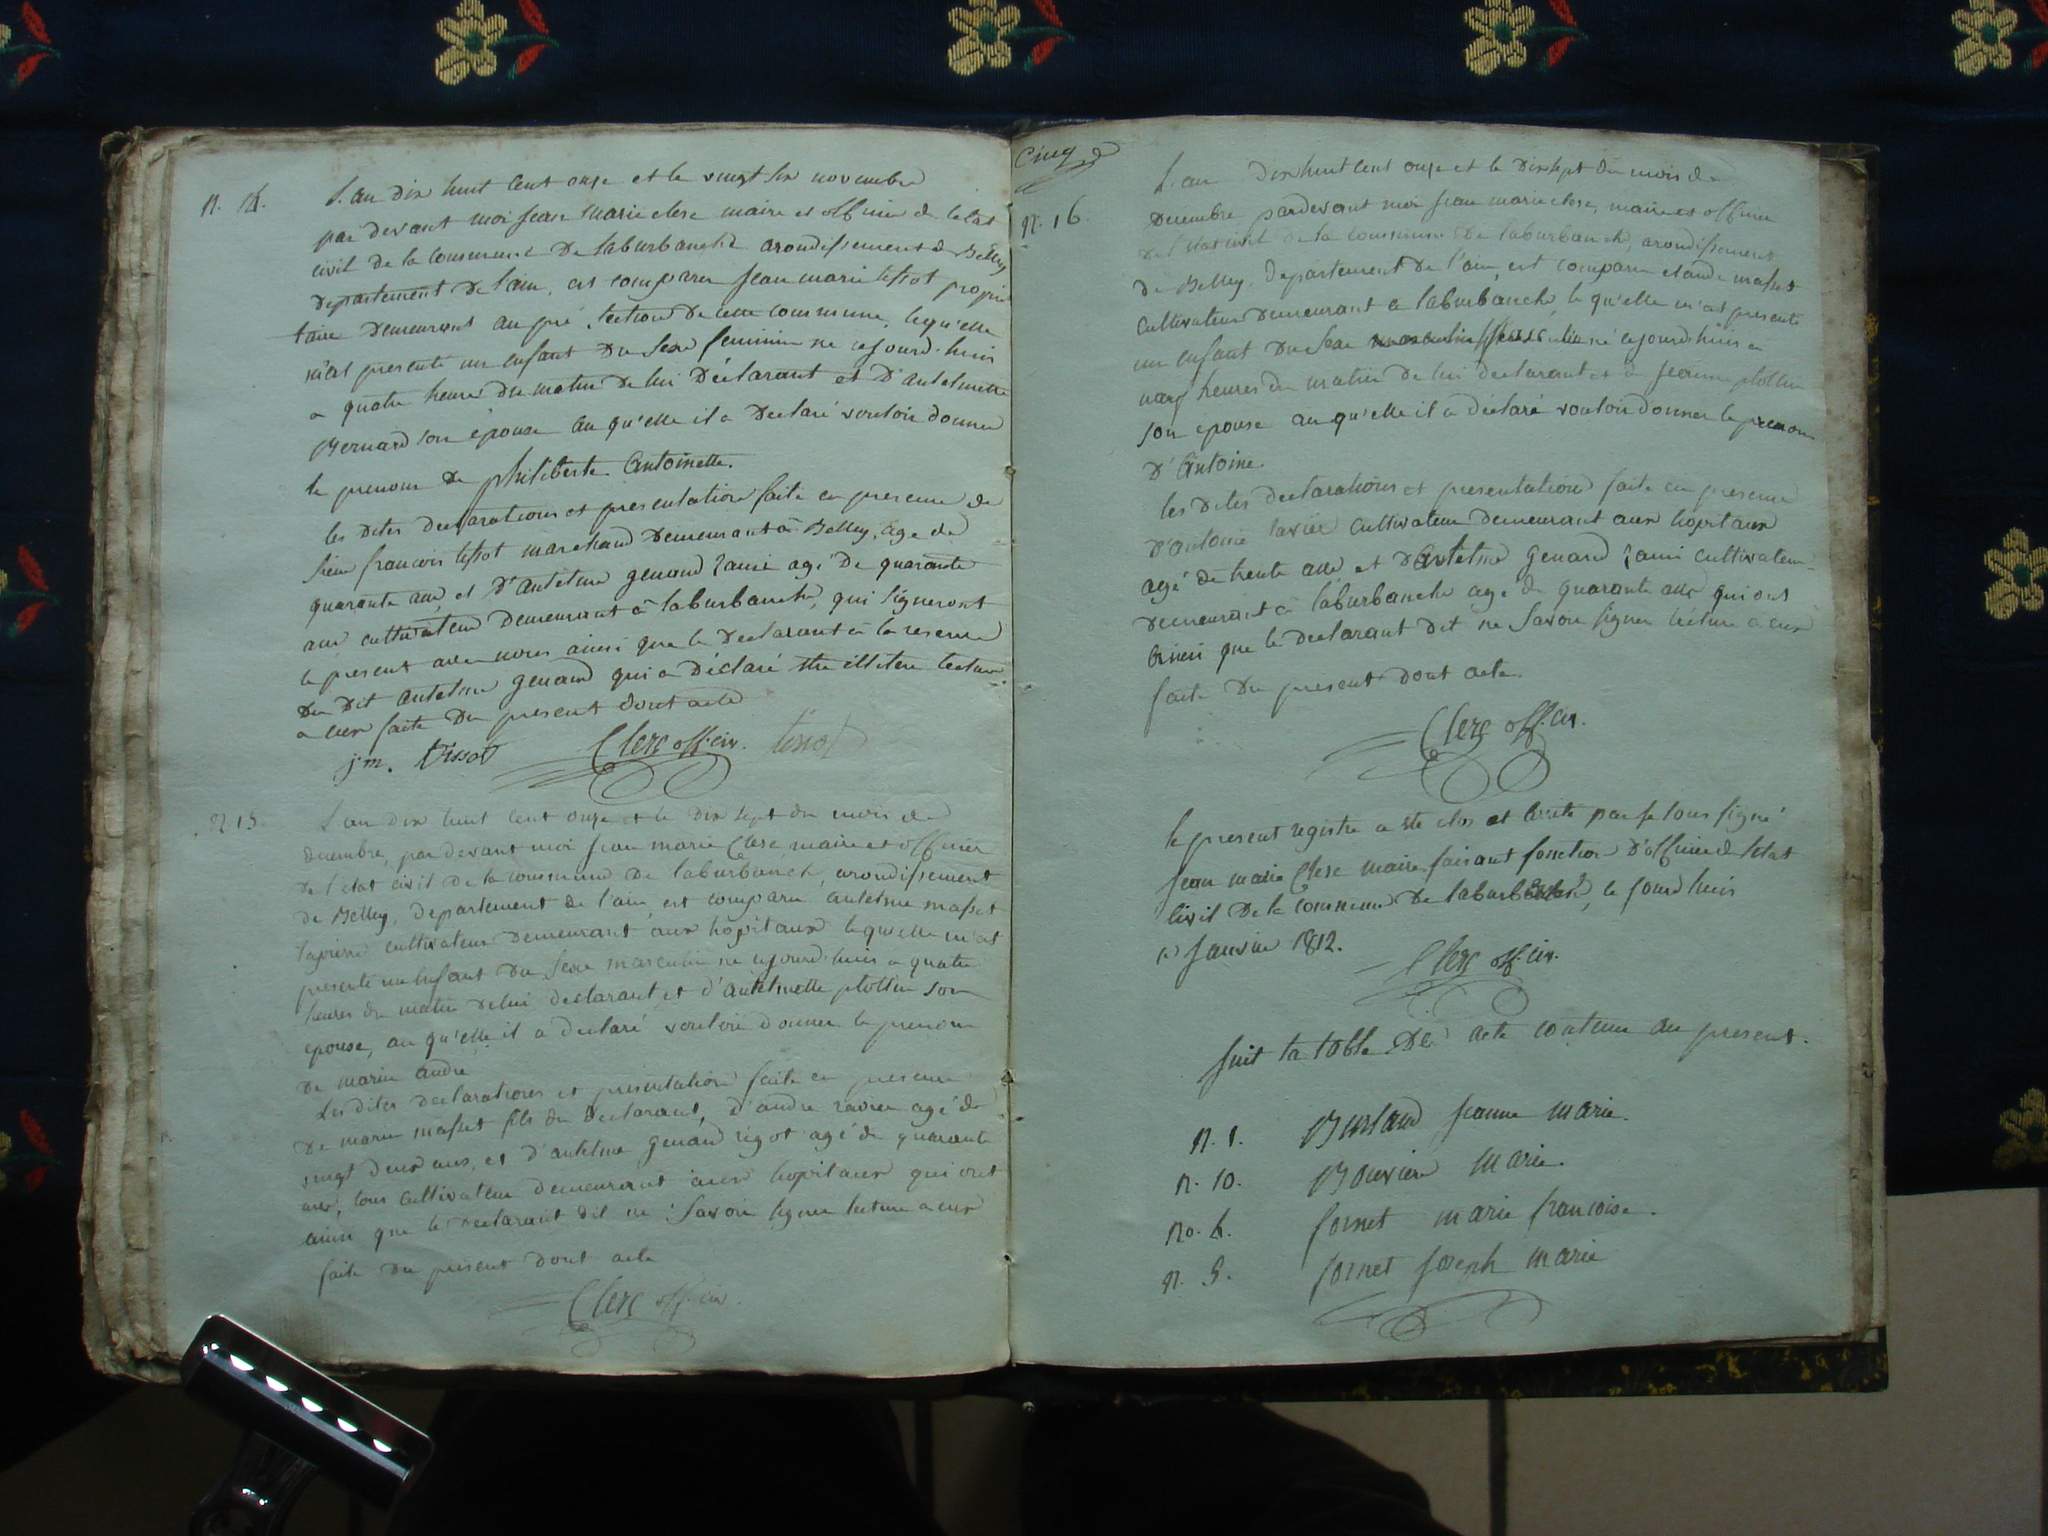 N. 14.
L'an dix huit cent onze et le vingt six novembre
par devant moi jean marie clerc maire et officier de letat
civil de la commune de laburbanche arondissement de Belley
departement de l'ain, est comparu jean marie tissot proprie
taire demeurant au pré, section de cette commune, lequ'elle
m'at presenté un enfant du sexe feminin né cejourd'huis
a quatre heures du matin de lui déclarant et D'antelmette
Bernard son épouse au qu'elle il a declaré vouloir donner
le prenom de philiberte Antoinette.
les dites declarations et presentation faite en presence de
sieur francois tissot marchand demeurant à Belley, age de
quarante ans, et D'antelme genand agé de quarante
ans cultivateur demeurant à laburbanche, qui signeront
le present avec nous ainsi que le declarant à la reserve
du dit antelme genand qui a déclaré etre illitere lecture
a eux faite du present dont acte
j.m. tissot Clerc off. civ. tissot
N. 15.
L'an dix huit cent onze et le dix sept du mois de
decembre, par devant moi jean marie Clerc maire et officier
de l'etat civil de la commune de laburbanch, arondissement
de Belley, departement de l'ain, est comparu antelme masset
cultivateur demeurant aux hopitaux lequ'elle m'at
presenté un enfant du sexe masculin né cejourd'huis a quatre
heures du matin de lui declarant, et d'antelmette plottin son
epouse, au qu'elle il a declaré vouloir donner le prenom
de marin andré
Les dites declarations et presentation faite en presence
de marin masset fils du declarant, d'andre ravier agé de
vingt deux ans, et d'antelme genand rigot agé de quarante
ans, tous cultivateur demeurant aux hopitaux qui ont
ainsi que le declarant dit ne savoir signer lecture a eux
faite du present dont acte
Clerc off. civ.
Cinq
N. 16.
L'an dix huit cent onze et le dix sept du mois de
decembre pardevant moi jean marie clerc, maire et officier
de l'etat civil de la commune de laburbanch, arondissement
de Belley, departement de l'ain, est comparu claude masset
cultivateur demeurant a laburbanche, lequ'elle m'at presenté
un enfant du sexe masculin né cejourd'huis a
neuf heures du matin de lui declarant et de jeanne plottin
son epouse au qu'elle il a déclaré vouloir donner le prenom
d'Antoine.
les dites declarations et presentation faite en presence
d'antoine ravier cultivateur demeurant aux hopitaux
agé de trente ans et d'Antelme genand cultivateur
demeurant à laburbanche agé de quarante ans qui ont
ainsi que le declarant dit ne savoir signer lecture a eux
faite du present dont acte.
Clerc off. civ.
le present registre a eté clos et arreté par je sous signé
jean marie Clerc maire faisant fonction d'officier de letat
civil de la commune de laburbanche, ce jourd'huis
janvier 1812.
Clerc off. civ.
suit la table des acte contenu au present.
N. 1. Burland jeanne marie.
N. 10. Bouvier Marie.
No. 6. fornet marie francoise.
N. 5. fornet joseph marie